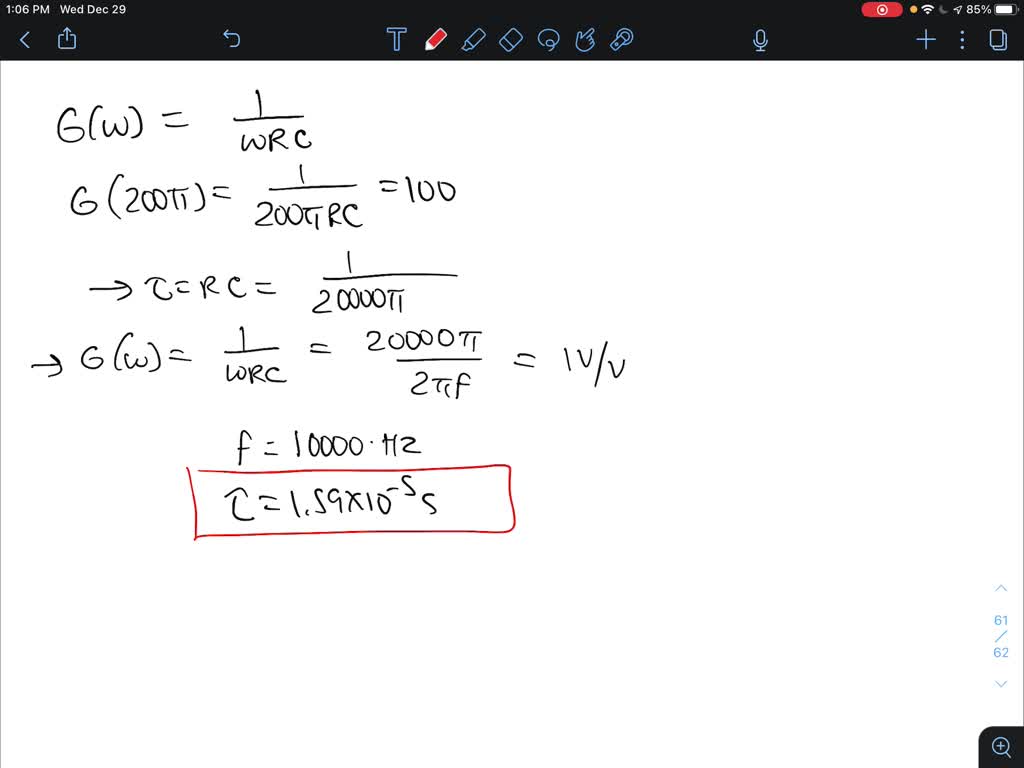 1:06 PM Wed Dec 29
85%
T
G(w) = 1/wRC
G(200π) = 1/200πRC = 100
→ τ = RC = 1/20000π
→ G(w) = 1/wRC = 20000π/2πf = 1V/V
f = 10000·Hz
τ = 1.59×10⁻⁵ s
61
/
62